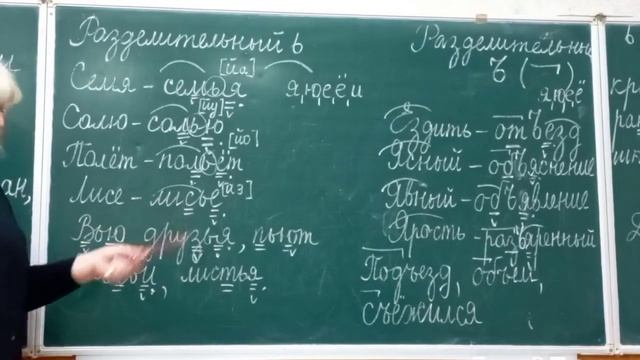 Разделительный ь
[йа]
Семя - семья я,ю,е,ё,и
[йу]
Солю - солью
[йо]
Полёт - польёт
[йэ]
Лисе - лисье
Вью друзья, пьют
листья.
Разделительны
Ъ (¬)
я,ю,е,ё
Ездить - отъезд
Ясный - объяснение
Явный - объявление
Ярость - разъяренный
Подъезд, объём,
съёжился